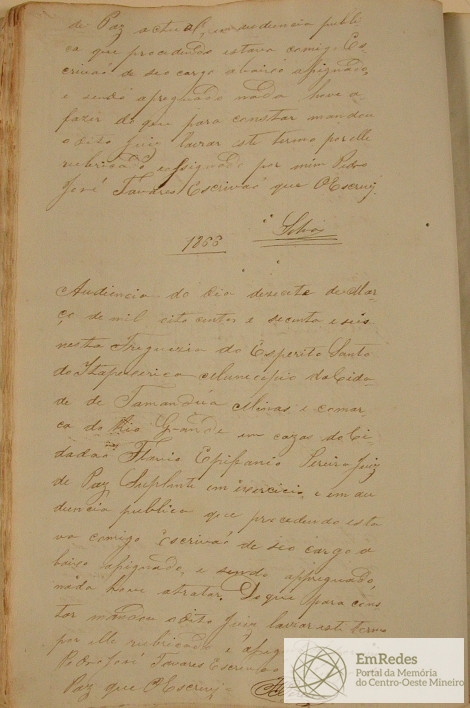 de Paz actual, em audiencia publi
ca que procedendo estava comigo Es
crivão de seo cargo abaixo assignado,
e sendo apregoado nada houve a
fazer do que para constar mandou
o dito Juiz lavrar este termo por elle
rubricado e assignado por mim Pedro
José Tavares Escrivão que O Escrevy.
1866
Audiencia do dia deseсete de Mar
ço de mil oito centos e secenta e seis
nesta Freguezia do Esperito Santo
do Itapecerica Municipio da Cida
de de Tamanduá Minas e comar
ca do Rio Grande em cazas do Ci
dadão Flavio Epifanio Pereira Juiz
de Paz Suplente em exercicio, e em au
diencia publica que procedendo esta
va comigo Escrivão de seo cargo a
baixo assignado, e sendo appregoado,
nada houve atratar. Do que para cons
tar mandou o dito Juiz lavrar este termo
por elle rubricado e
Pedro José Tavares Escrivão
Paz que O Escrevy
EmRedes
Portal da Memória
do Centro-Oeste Mineiro